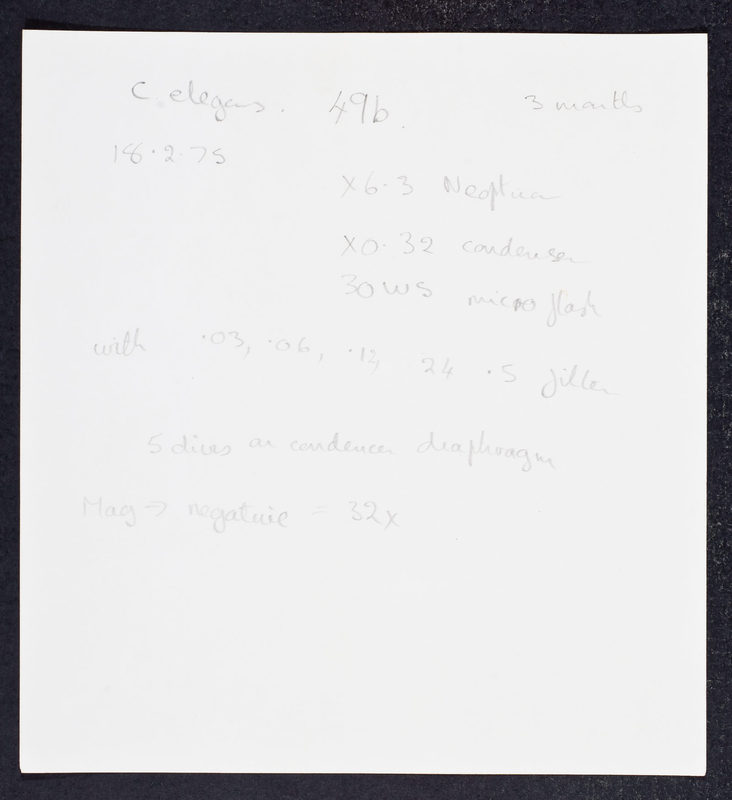 C. elegans. 49b. 3 months
18.2.75
X6.3 Neofluar
X0.32 condenser
30 WS micro flash
with .03, .06, .12, 24 .5 filter
5 divs on condenser diaphragm
Mag → negative = 32x